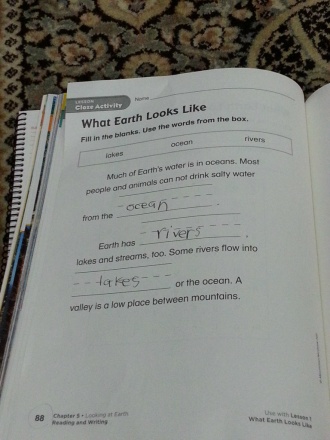 LESSON1
Class Activity
Name
What Earth Looks Like
Fill in the blanks. Use the words from the box.
lakes ocean rivers
Much of Earth's water is in oceans. Most
people and animals can not drink salty water
from the ocean .
Earth has rivers ,
lakes and streams, too. Some rivers flow into
lakes or the ocean. A
valley is a low place between mountains.
88 Chapter 5 • Looking at Earth
Reading and Writing
Use with Lesson 1
What Earth Looks Like